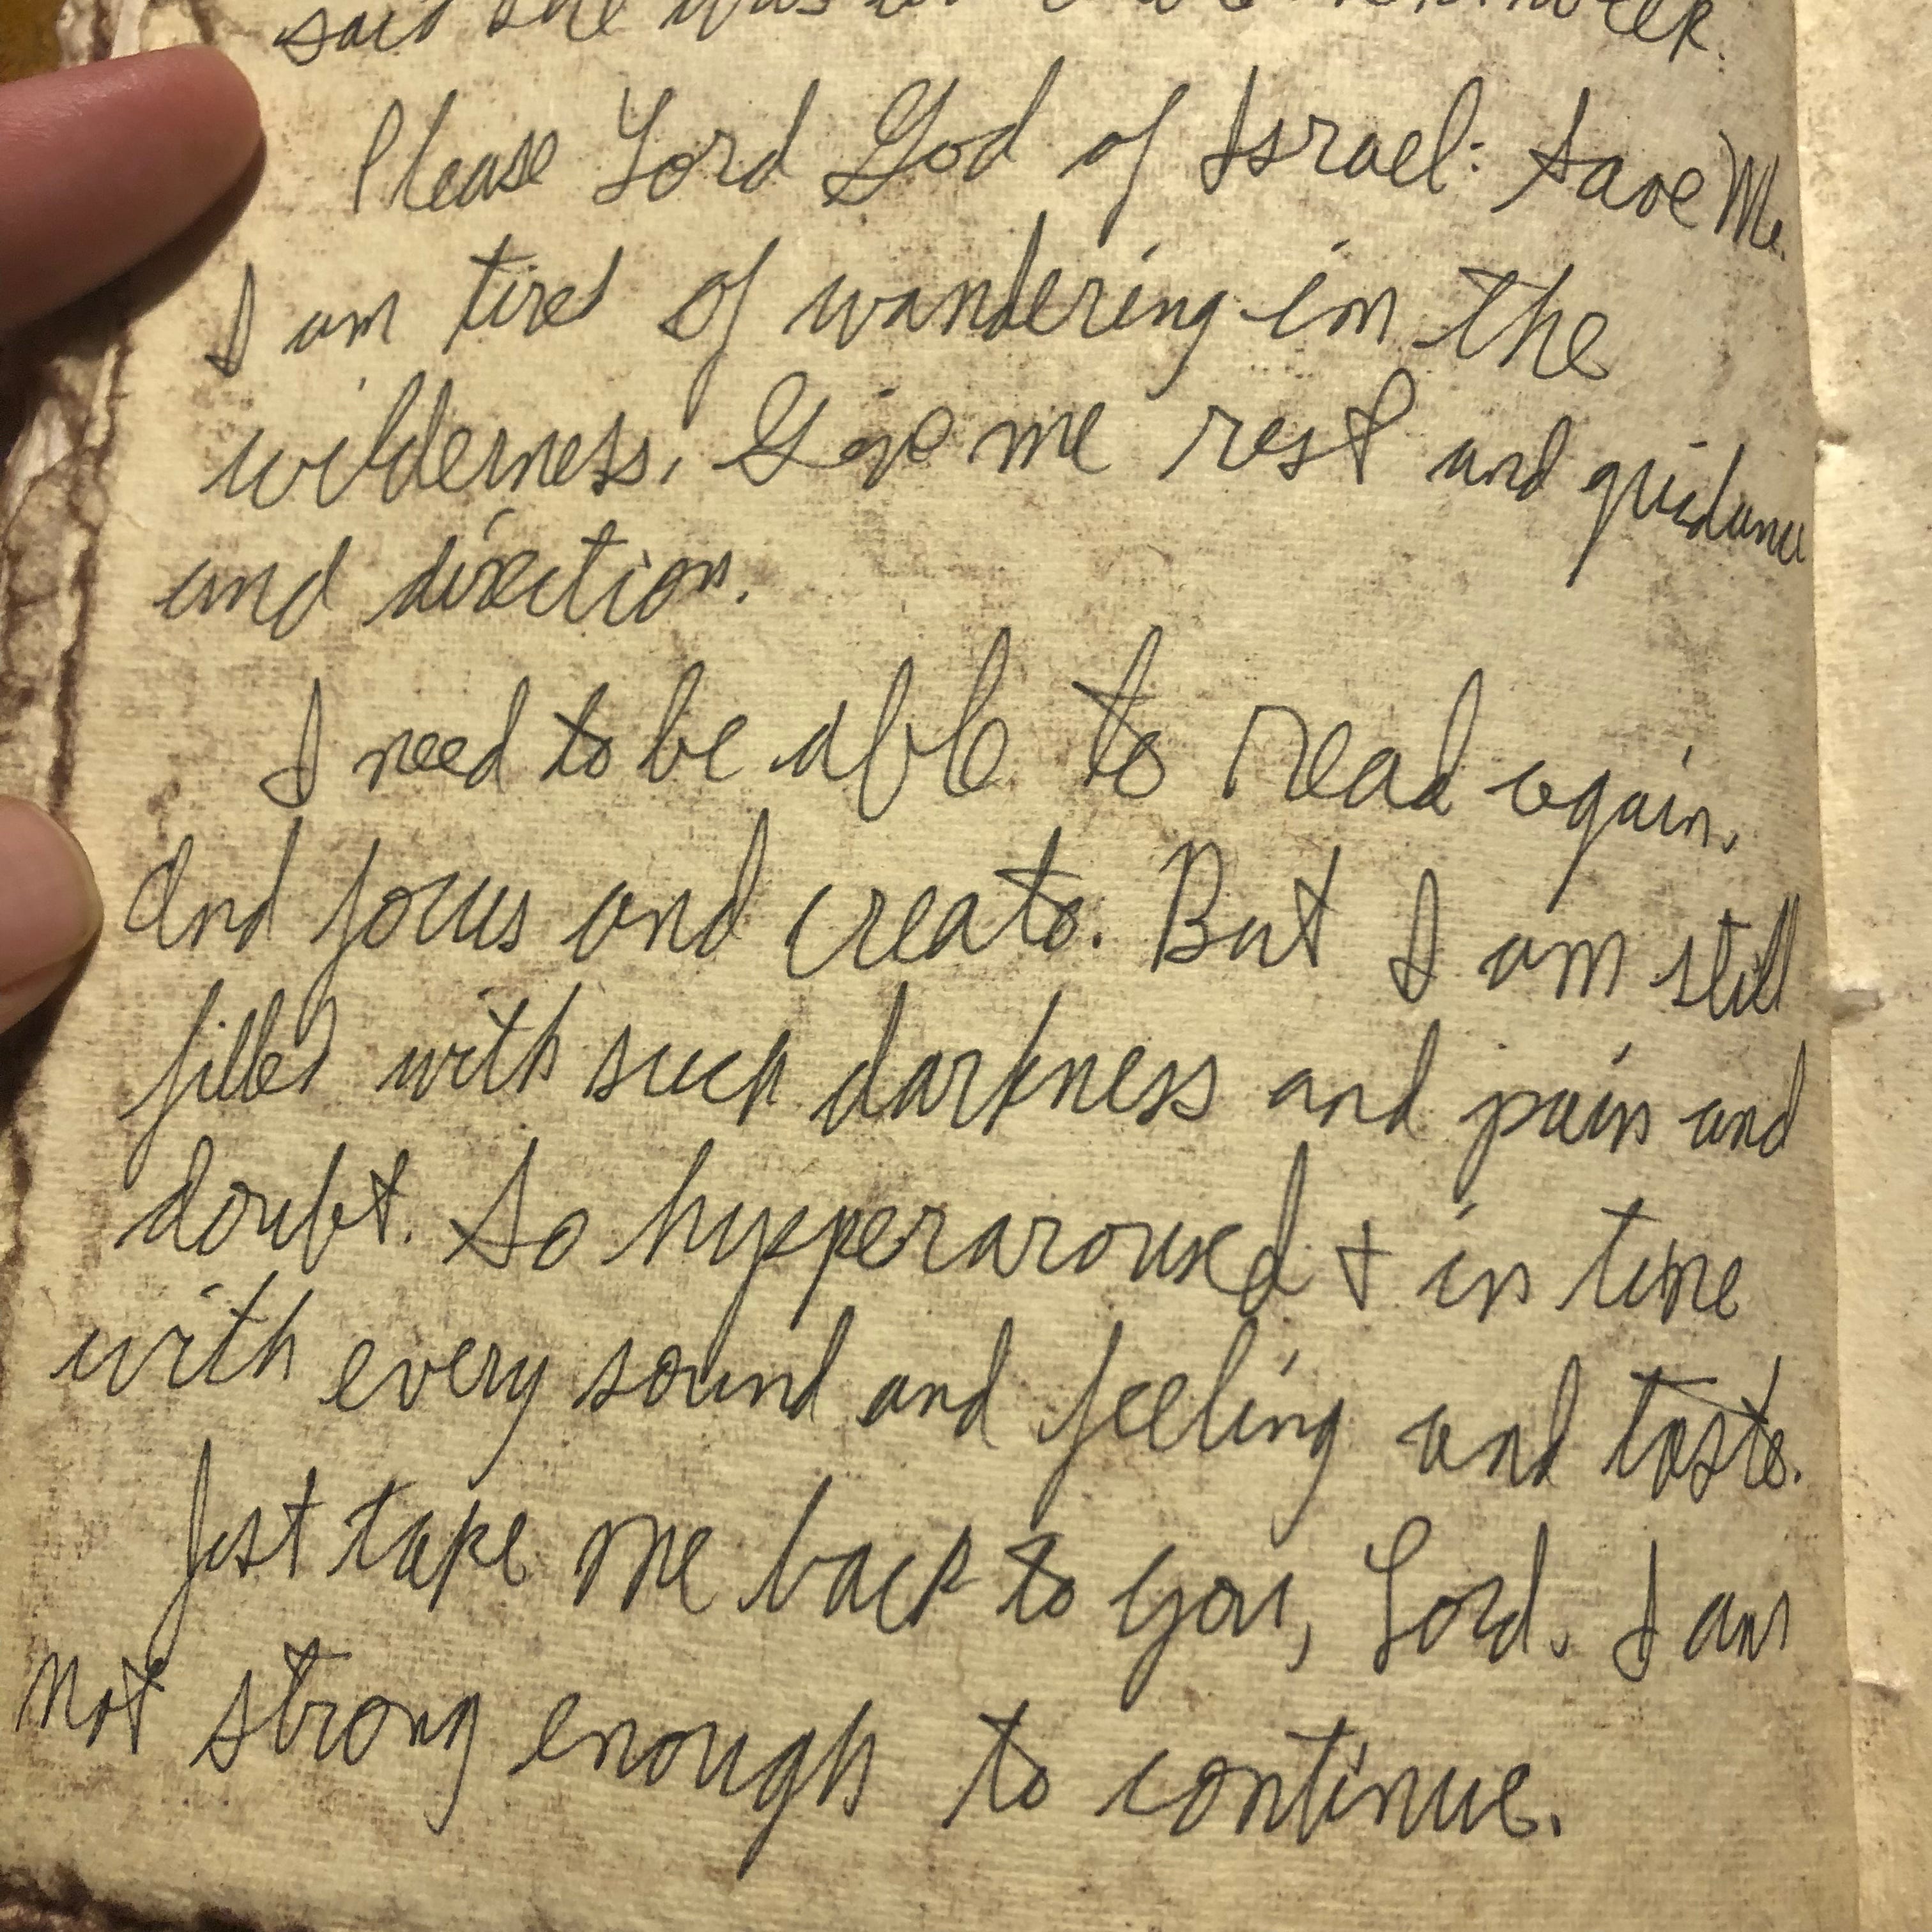 said she was
Please Lord God of Israel: Save Me.
I am tired of wandering in the
wilderness. Give me rest and guidance
and direction.
I need to be able to read again.
And focus and create. But I am still
filled with such darkness and pain and
doubt. So hypperaroused + in tune
with every sound and feeling and taste.
Just take me back to you, Lord. I am
not strong enough to continue.